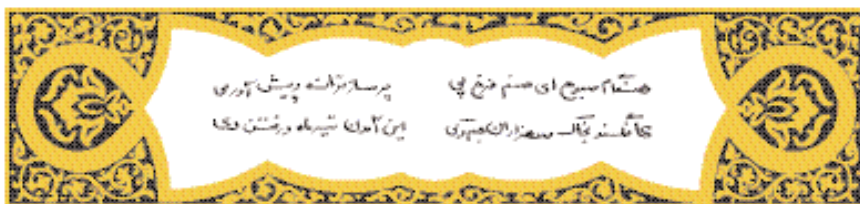 هنگام صبوح ای صنم فرخ پی برساز ترانه و پیش آور می
کافکند بخاک صد هزاران جم و کی این آمدن تیرمه و رفتن دی